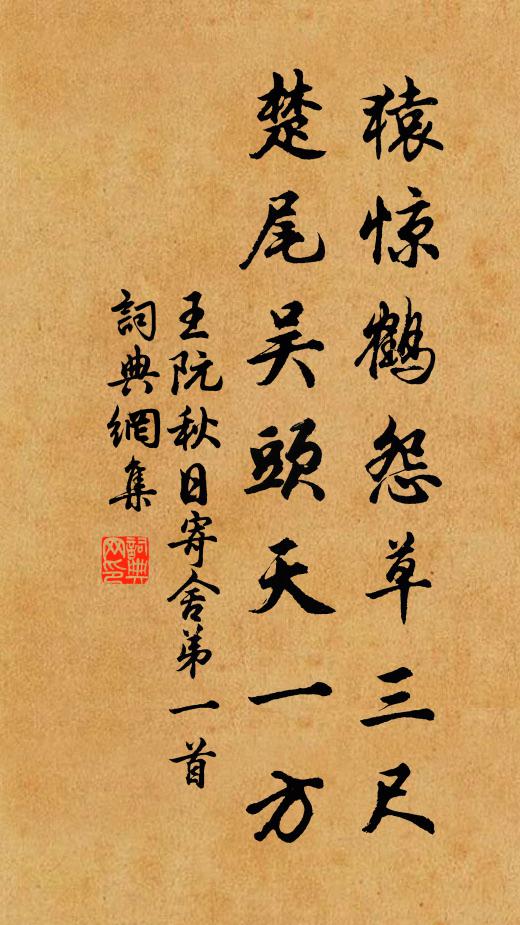 猿惊鹤怨草三尺
楚尾吴頭天一方
王阮秋日寄舍弟一首
詞典網集
詞典网印